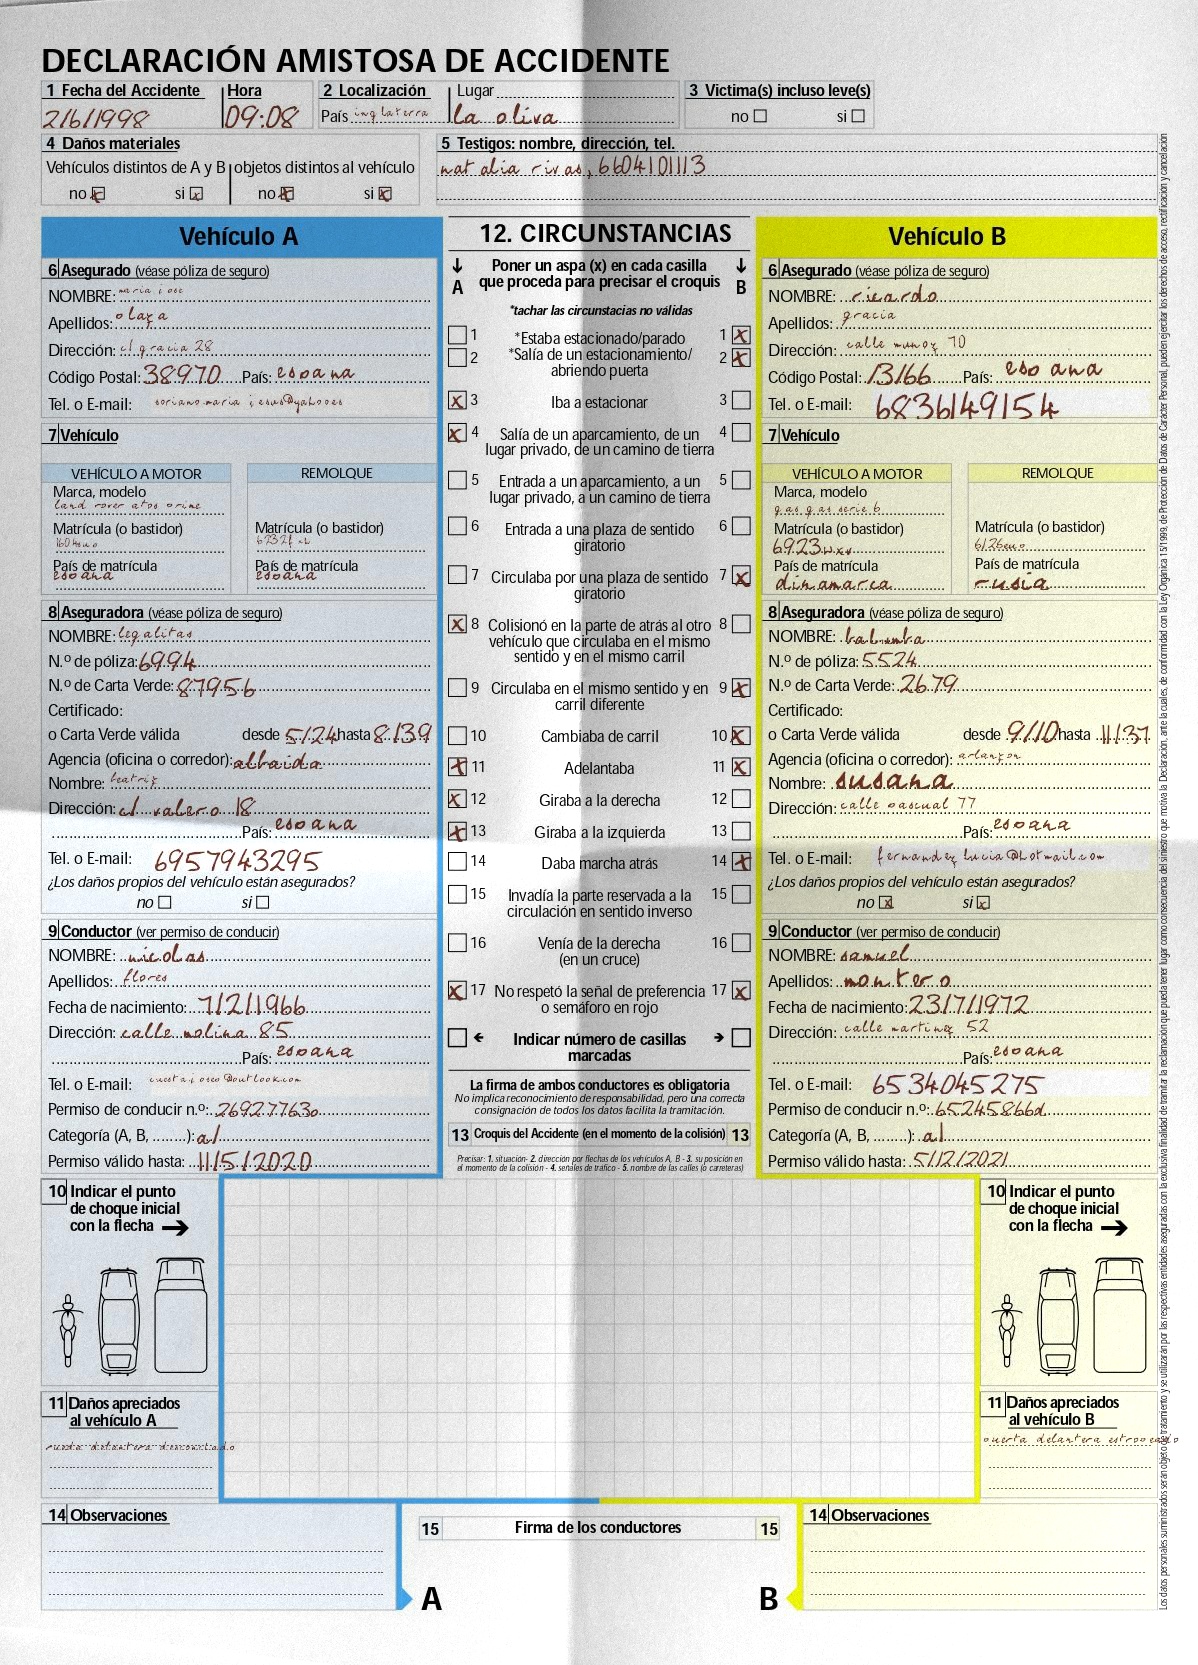 DECLARACIÓN AMISTOSA DE ACCIDENTE
1 Fecha del Accidente Hora 2 Localización Lugar 3 Victima(s) incluso leve(s)
2/6/1998 09:08 País inglaterra la oliva no si
4 Daños materiales 5 Testigos: nombre, dirección, tel.
Vehículos distintos de A y B objetos distintos al vehículo natalia rivas, 6604101113
no x si x no x si x
Vehículo A
6 Asegurado (véase póliza de seguro)
NOMBRE: maria jose
Apellidos: olaya
Dirección: cl gracia 28
Código Postal: 38970 País: espana
Tel. o E-mail: sorianomaria jesus@yahooes
7 Vehículo
VEHÍCULO A MOTOR REMOLQUE
Marca, modelo
land rover atos prime
Matrícula (o bastidor) Matrícula (o bastidor)
País de matrícula País de matrícula
espana espana
8 Aseguradora (véase póliza de seguro)
NOMBRE: legalitas
N.º de póliza: 6994
N.º de Carta Verde: 87956
Certificado:
o Carta Verde válida desde 5/24 hasta 8/39
Agencia (oficina o corredor): albaida
Nombre: beatriz
Dirección: cl valero 18
País: espana
Tel. o E-mail: 6957943295
¿Los daños propios del vehículo están asegurados?
no si
9 Conductor (ver permiso de conducir)
NOMBRE: nicolas
Apellidos: flores
Fecha de nacimiento: 7/2/1966
Dirección: calle molina 85
País: espana
Tel. o E-mail: cuestajoseo@outlook.com
Permiso de conducir n.º: 26927763o
Categoría (A, B, ........): a1
Permiso válido hasta: 11/5/2020
10 Indicar el punto
de choque inicial
con la flecha
11 Daños apreciados
al vehículo A
rueda delantera desmontado
14 Observaciones
12. CIRCUNSTANCIAS
A Poner un aspa (x) en cada casilla B
que proceda para precisar el croquis
*tachar las circunstacias no válidas
1 *Estaba estacionado/parado 1 x
2 *Salía de un estacionamiento/ 2 x
abriendo puerta
x 3 Iba a estacionar 3
x 4 Salía de un aparcamiento, de un 4
lugar privado, de un camino de tierra
5 Entrada a un aparcamiento, a un 5
lugar privado, a un camino de tierra
6 Entrada a una plaza de sentido 6
giratorio
7 Circulaba por una plaza de sentido 7 x
giratorio
x 8 Colisionó en la parte de atrás al otro 8
vehículo que circulaba en el mismo
sentido y en el mismo carril
9 Circulaba en el mismo sentido y en 9 x
carril diferente
10 Cambiaba de carril 10 x
x 11 Adelantaba 11 x
x 12 Giraba a la derecha 12
x 13 Giraba a la izquierda 13
14 Daba marcha atrás 14 x
15 Invadía la parte reservada a la 15
circulación en sentido inverso
16 Venía de la derecha 16
(en un cruce)
x 17 No respetó la señal de preferencia 17 x
o semáforo en rojo
Indicar número de casillas
marcadas
La firma de ambos conductores es obligatoria
No implica reconocimiento de responsabilidad, pero una correcta
consignación de todos los datos facilita la tramitación.
13 Croquis del Accidente (en el momento de la colisión) 13
Precisar: 1. situación- 2. dirección por flechas de los vehículos A, B - 3. su posición en
el momento de la colisión - 4. señales de tráfico - 5. nombre de las calles (o carreteras)
15 Firma de los conductores 15
A B
Vehículo B
6 Asegurado (véase póliza de seguro)
NOMBRE: ricardo
Apellidos: gracia
Dirección: calle munoz 70
Código Postal: 13166 País: espana
Tel. o E-mail: 6836149154
7 Vehículo
VEHÍCULO A MOTOR REMOLQUE
Marca, modelo
gas gas serie 6
Matrícula (o bastidor) Matrícula (o bastidor)
6923wxv
País de matrícula País de matrícula
dinamarca rusia
8 Aseguradora (véase póliza de seguro)
NOMBRE: balumba
N.º de póliza: 5524
N.º de Carta Verde: 2679
Certificado:
o Carta Verde válida desde 9/10 hasta 11/37
Agencia (oficina o corredor): arlanzon
Nombre: susana
Dirección: calle pascual 77
País: espana
Tel. o E-mail: fernandez lucia@hotmail.com
¿Los daños propios del vehículo están asegurados?
no x si x
9 Conductor (ver permiso de conducir)
NOMBRE: samuel
Apellidos: montero
Fecha de nacimiento: 23/7/1972
Dirección: calle martinez 52
País: espana
Tel. o E-mail: 6534045275
Permiso de conducir n.º: 65245866d
Categoría (A, B, ........): a1
Permiso válido hasta: 5/12/2021
10 Indicar el punto
de choque inicial
con la flecha
11 Daños apreciados
al vehículo B
puerta delantera estropeado
14 Observaciones
Los datos personales suministrados seran objeto de tratamiento y se utilizarán por las respectivas entidades aseguradas con la exclusiva finalidad de tramitar la reclamación que pueda tener lugar como consecuencia del siniestro que motiva la Declaración, ante la cuales, de conformidad con la Ley Orgánica 15/1999, de Protección de Datos de Carácter Personal, pueden ejercitar los derechos de acceso, rectificación y cancelación